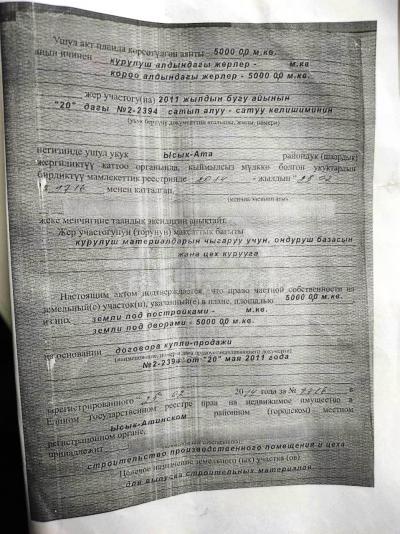 Ушул акт планда көрсөтүлгөн аянты 5000 0,0 м.кв.
анын ичинен курулуш алдындагы жерлер - м.кв
короо алдындагы жерлер - 5000 0,0 м.кв.
жер участогу(на) 2011 жылдын бугу айынын
"20" дагы №2-2394 сатып алуу - сатуу келишиминин
негизинде ушул укук Ысык-Ата райондук (шаардык)
жергиликтүү каттоо органында, кыймылсыз мүлккө болгон укуктардын
бирдиктүү мамлекеттик реестринде 2014 - жылдын "28 02
менен катталган,
жеке менчигине таандык экендигин аныктайт.
Жер участогунун (торунун) максаттык багыты
курулуш материалдарын чыгаруу учун, ондуруш базасын
жана цех курууга
Настоящим актом подтверждается, что право частной собственности на
земельный(е) участок(и), указанный(е) в плане, площадью 5000 0,0 м.кв.
из них земли под постройками - м.кв.
земли под дворами - 5000 0,0 м.кв.
на основании договора купли-продажи
№2-2394 от "20" мая 2011 года
зарегистрированного 2014 года за № в
Едином государственном реестре прав на недвижимое имущество в
Ысык-Атинском районном (городском) местном
регистрационном органе,
принадлежит
строительство производственного помещения и цеха
Целевое назначение земельного (ых) участка (ов)
для выпуска строительных материалов